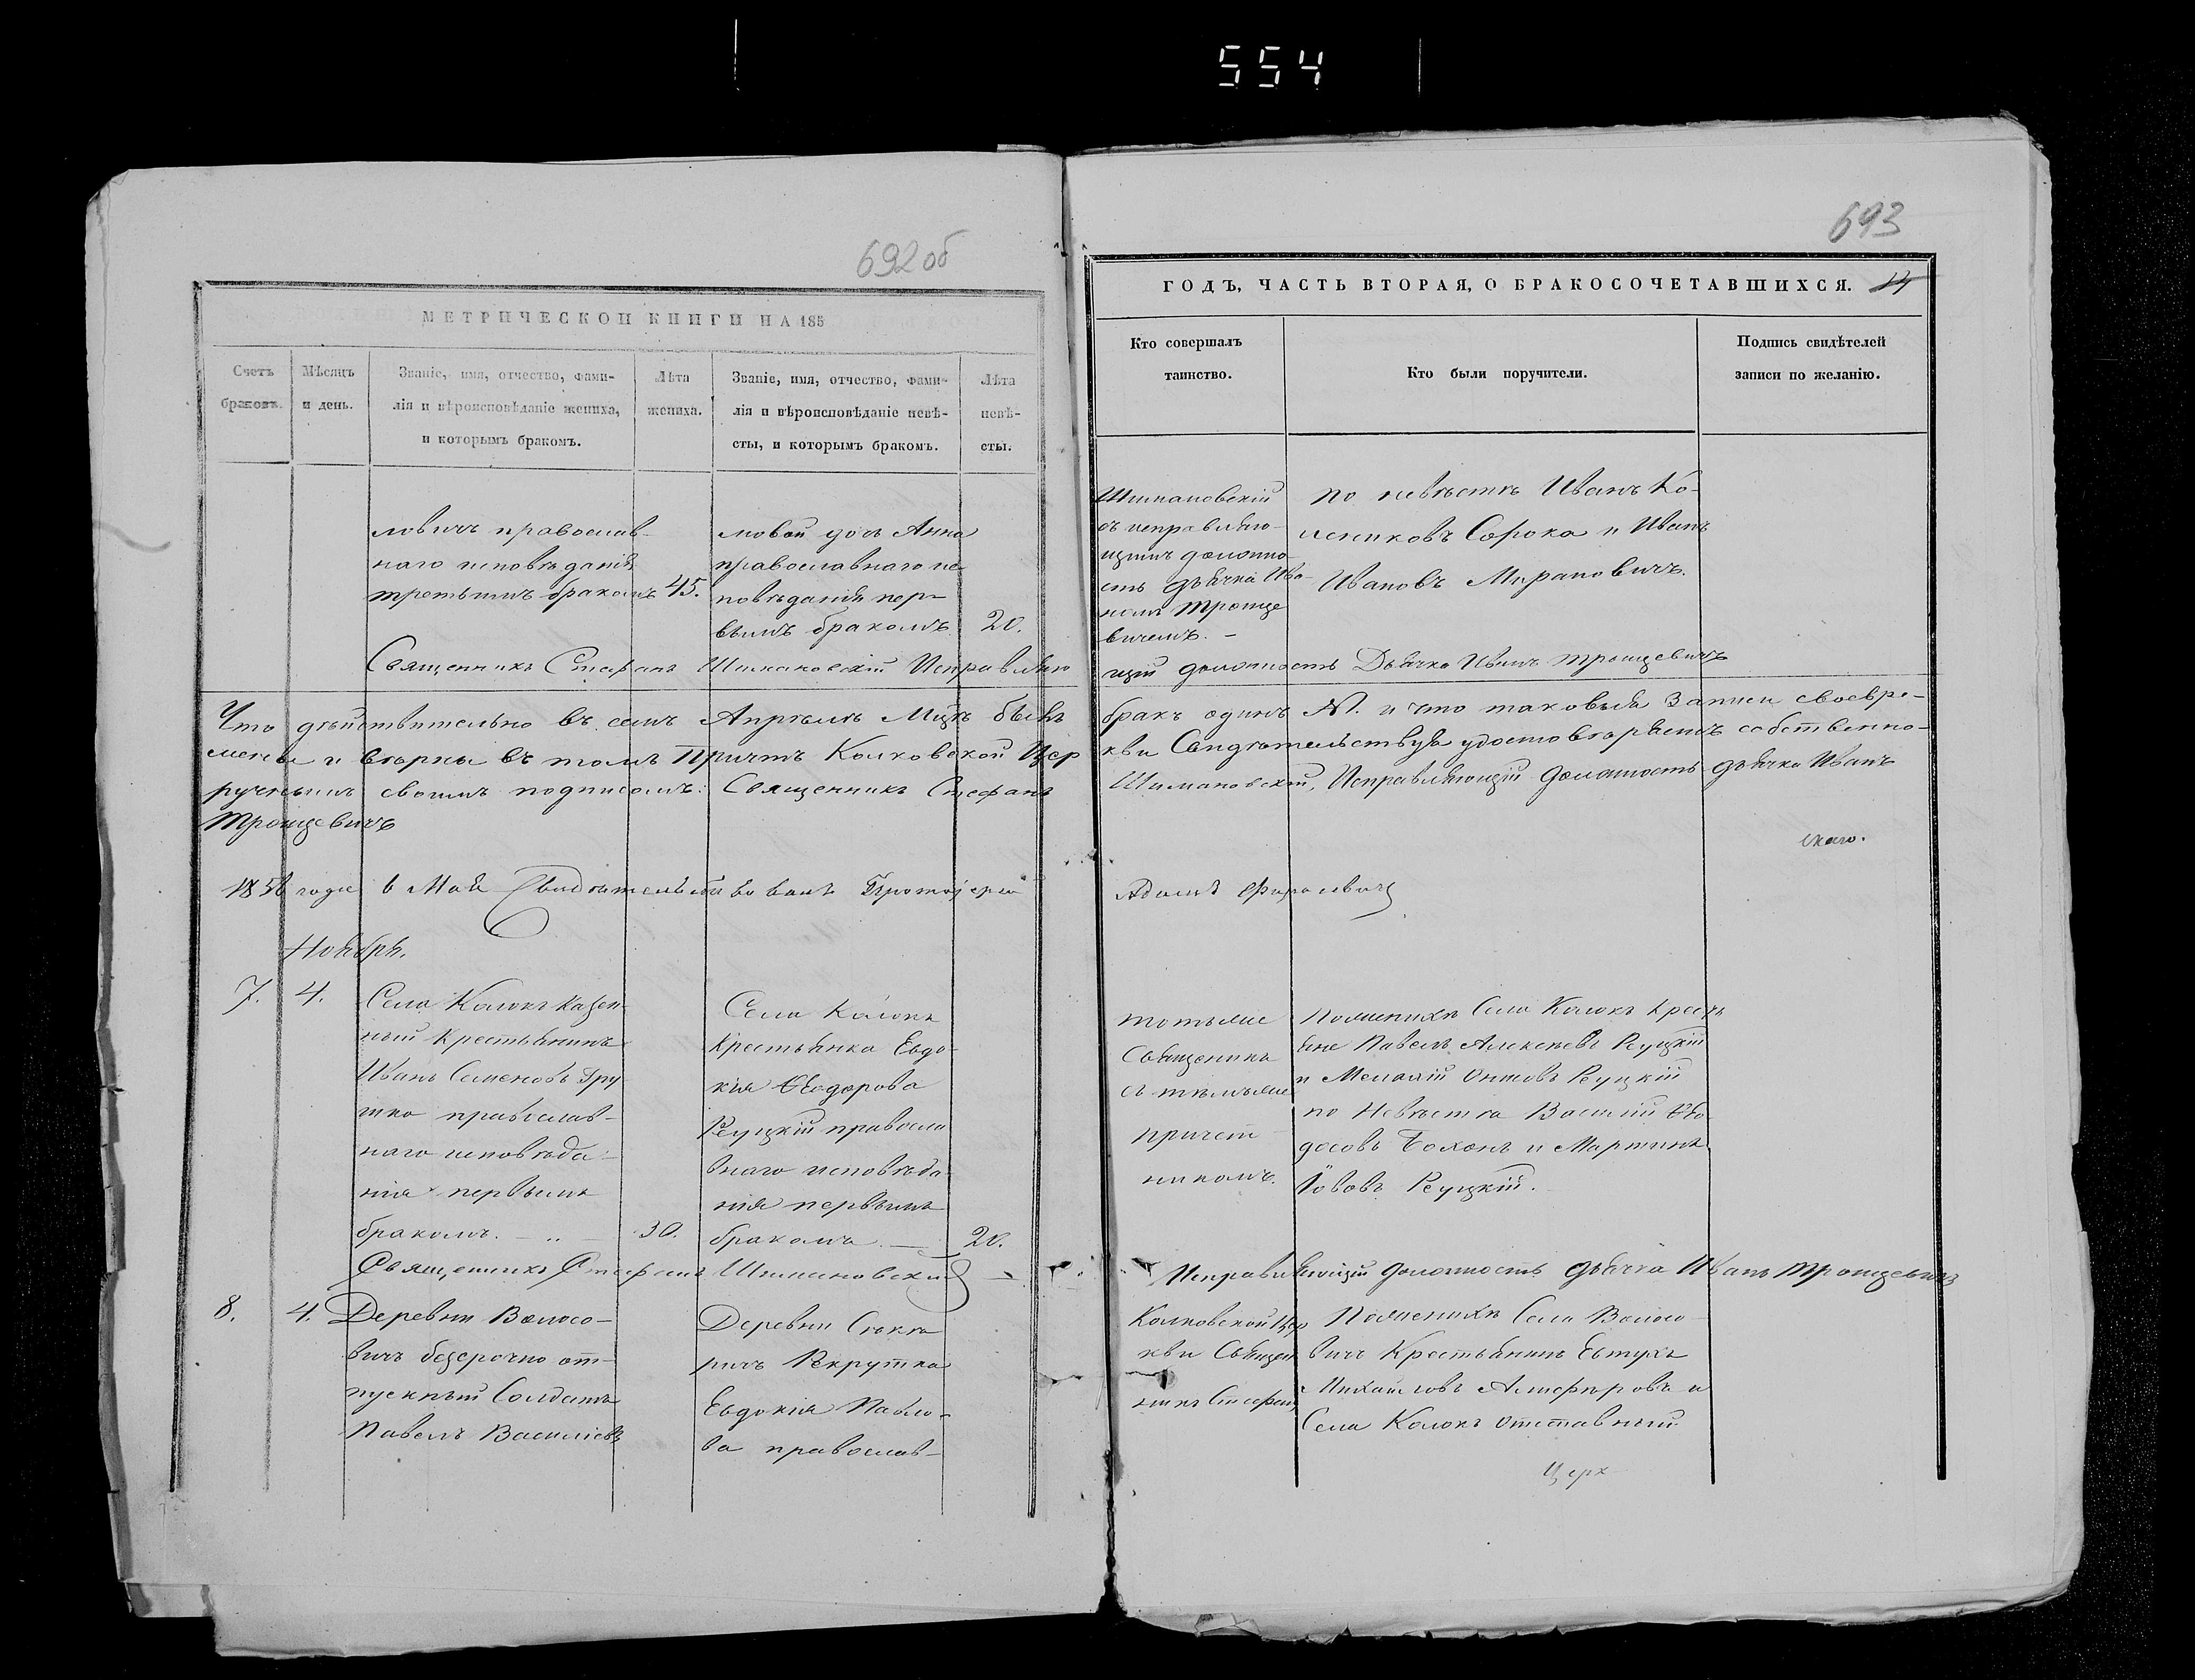 554
692об
МЕТРИЧЕСКОЙ КНИГИ НА 185
Счетъ браковъ.
Мѣсяцъ и день.
Званіе, имя, отчество, фами-
лія и вѣроисповѣданіе жениха,
и которымъ бракомъ.
Лѣта жениха.
Званіе, имя, отчество, фами-
лія и вѣроисповѣданіе невѣ-
сты, и которымъ бракомъ.
Лѣта невѣ-
сты.
ловичъ православ-
наго исповѣданія
третьимъ бракомъ 45.
мовой дочь Анна
православнаго ис-
повѣданія пер-
вымъ бракомъ 20.
Священникъ Стефанъ Шимановскій Исправляю
Что дѣйствительно въ семъ Апрѣлѣ Мцѣ былъ
менны и вѣрны въ томъ Причтъ Колковской Цер
ручнымъ своимъ подписомъ: Священникъ Стефанъ
Трощевичъ
1856 года 6 Мая Свидѣтельствовалъ Протоіерей
Ноябрь.
7. 4.
Села Колокъ казен-
ный Крестьянинъ
Иванъ Семеновъ Гру
шка православ-
наго исповѣда-
нія первымъ
бракомъ. 30.
Села Колокъ
Крестьянка Евдо-
кія Ѳеодорова
Реуцкій правосла
внаго исповѣда
нія первымъ
бракомъ. 20.
Священникъ Стефанъ Шимановскій
8. 4.
Деревни Волосо-
вичъ безсрочно от-
пускный Солдатъ
Павелъ Василіевъ
Деревни
ричъ Рекрутка
Евдокія Павло-
ва православ-
693
ГОДЪ, ЧАСТЬ ВТОРАЯ, О БРАКОСОЧЕТАВШИХСЯ.
Кто совершалъ
таинство.
Кто были поручители.
Подпись свидѣтелей
записи по желанію.
Шимановскій
съ исправляю-
щимъ должно-
сть дьячка Ива-
номъ Троще
вичемъ. –
по невѣстѣ Иванъ Ко-
Сорока и Иванъ
Ивановъ Мирановичъ.
щій должность Дьячка Иванъ Трощевичъ
бракъ одинъ №1. и что таковыя Записи своевре-
кви Свидѣтельствуя удостовѣряетъ собственно-
Шимановскій, Исправляющій должность дьячка Иванъ
скаго.
Адамъ
тотъже
Священникъ
съ тѣмъже
причет
никомъ.
Поженихѣ Села Колокъ Кресть
яне Павелъ Алексѣевъ Реуцкій
и Реуцкій
по Невѣстѣ Василій Ѳео
досовъ и Мартинъ
Іововъ Реуцкій.
Исправляющій должность дьячка Иванъ Трощевичъ
Колковской Цер
кви Священ
никъ Стефанъ
Поженихѣ Села Волосо
вичъ Крестьянинъ Евтухъ
Михайловъ и
Села Колокъ отставный
Церк